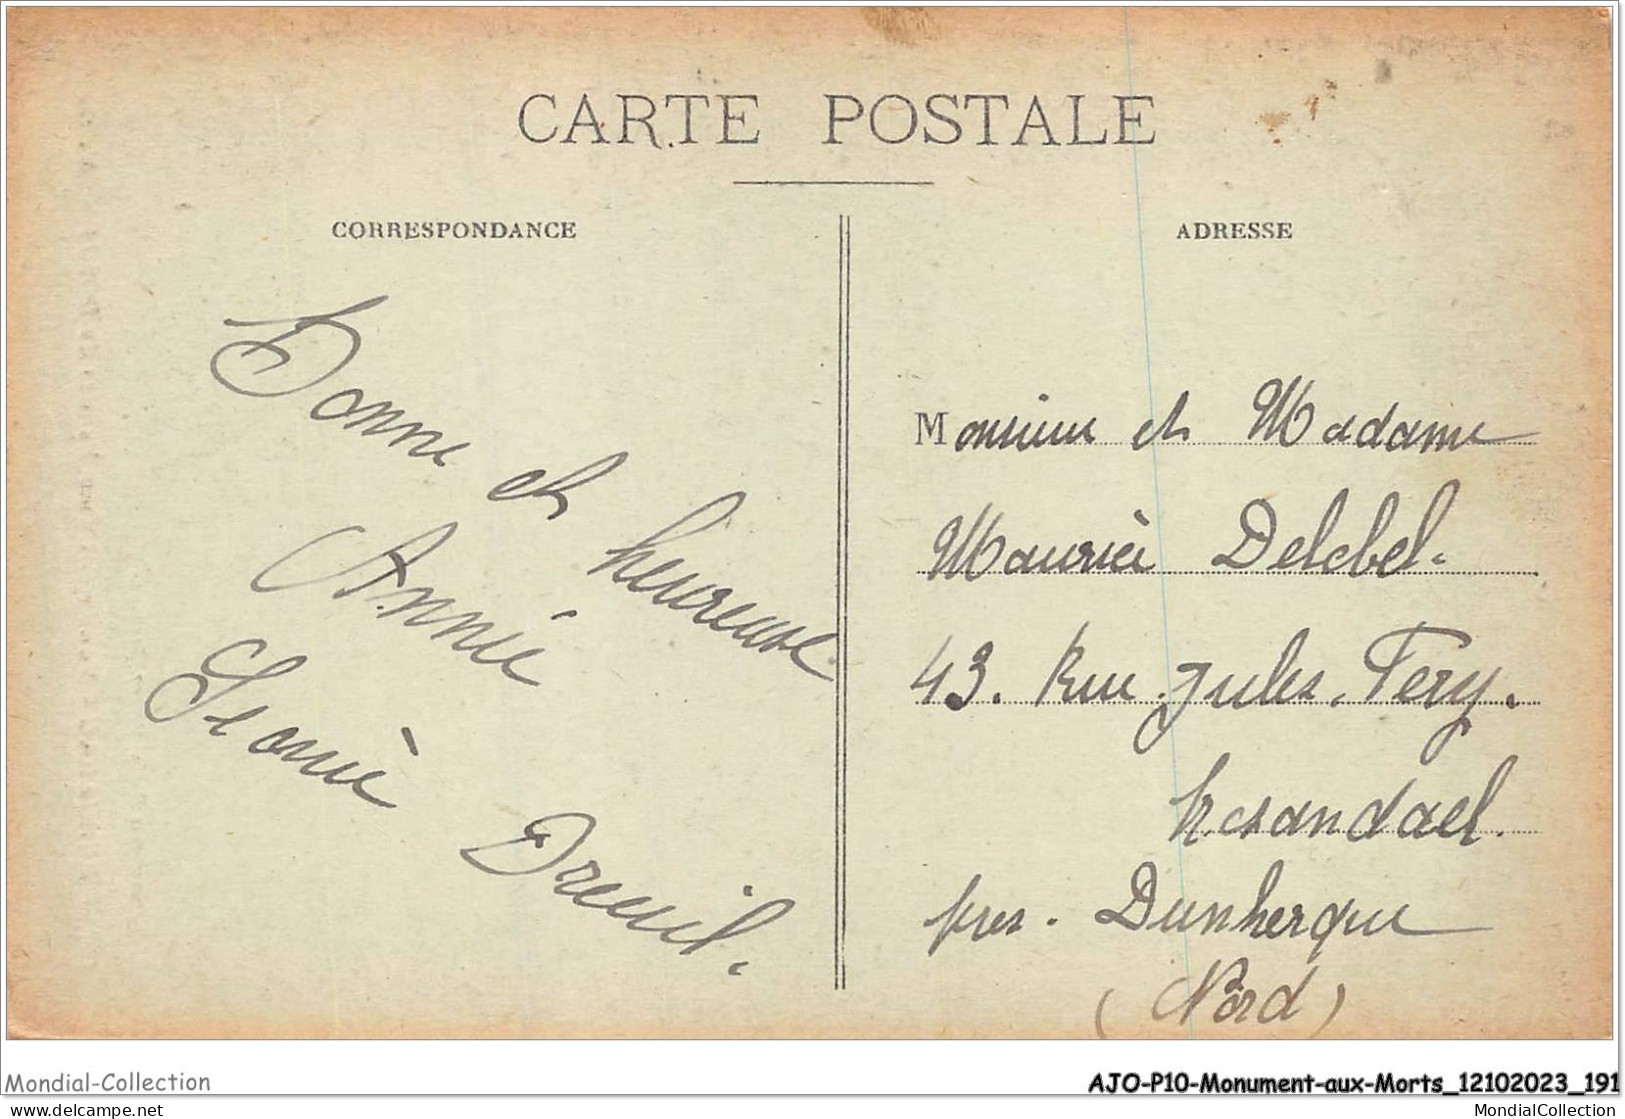 CARTE POSTALE
CORRESPONDANCE
Bonne et heureuse
Année
Léonie Dreuil.
ADRESSE
Monsieur et Madame
Maurice Delebel.
43. Rue Jules. Fery.
Rosendael.
près. Dunkerque
(Nord)
Mondial-Collection
AJO-P10-Monument-aux-Morts_12102023_191
www.delcampe.net
MondialCollection